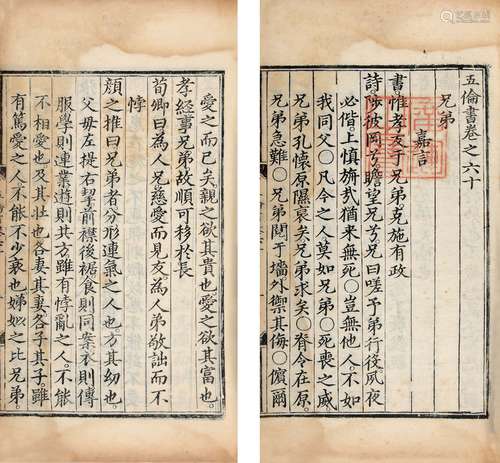 五倫書卷之六十
兄弟
嘉言
書惟孝友于兄弟克施有政
詩陟彼岡兮瞻望兄兮兄曰嗟予弟行役夙夜
必偕上慎旃哉猶來無死○豈無他人不如
我同父○凡今之人莫如兄弟○死喪之威
兄弟孔懷原隰裒矣兄弟求矣○脊令在原
兄弟急難○兄弟鬩于墻外禦其侮○儐爾
愛之而已矣親之欲其貴也愛之欲其富也
孝經事兄弟故順可移於長
荀卿曰為人兄慈愛而見友為人弟敬詘而不
悖
顏之推曰兄弟者分形連氣之人也方其幼也
父母左提右挈前襟後裾食則同案衣則傳
服學則連業遊則共方雖有悖亂之人不能
不相愛也及其壯也各妻其妻各子其子雖
有篤愛之人不能不少衰也娣姒之比兄弟